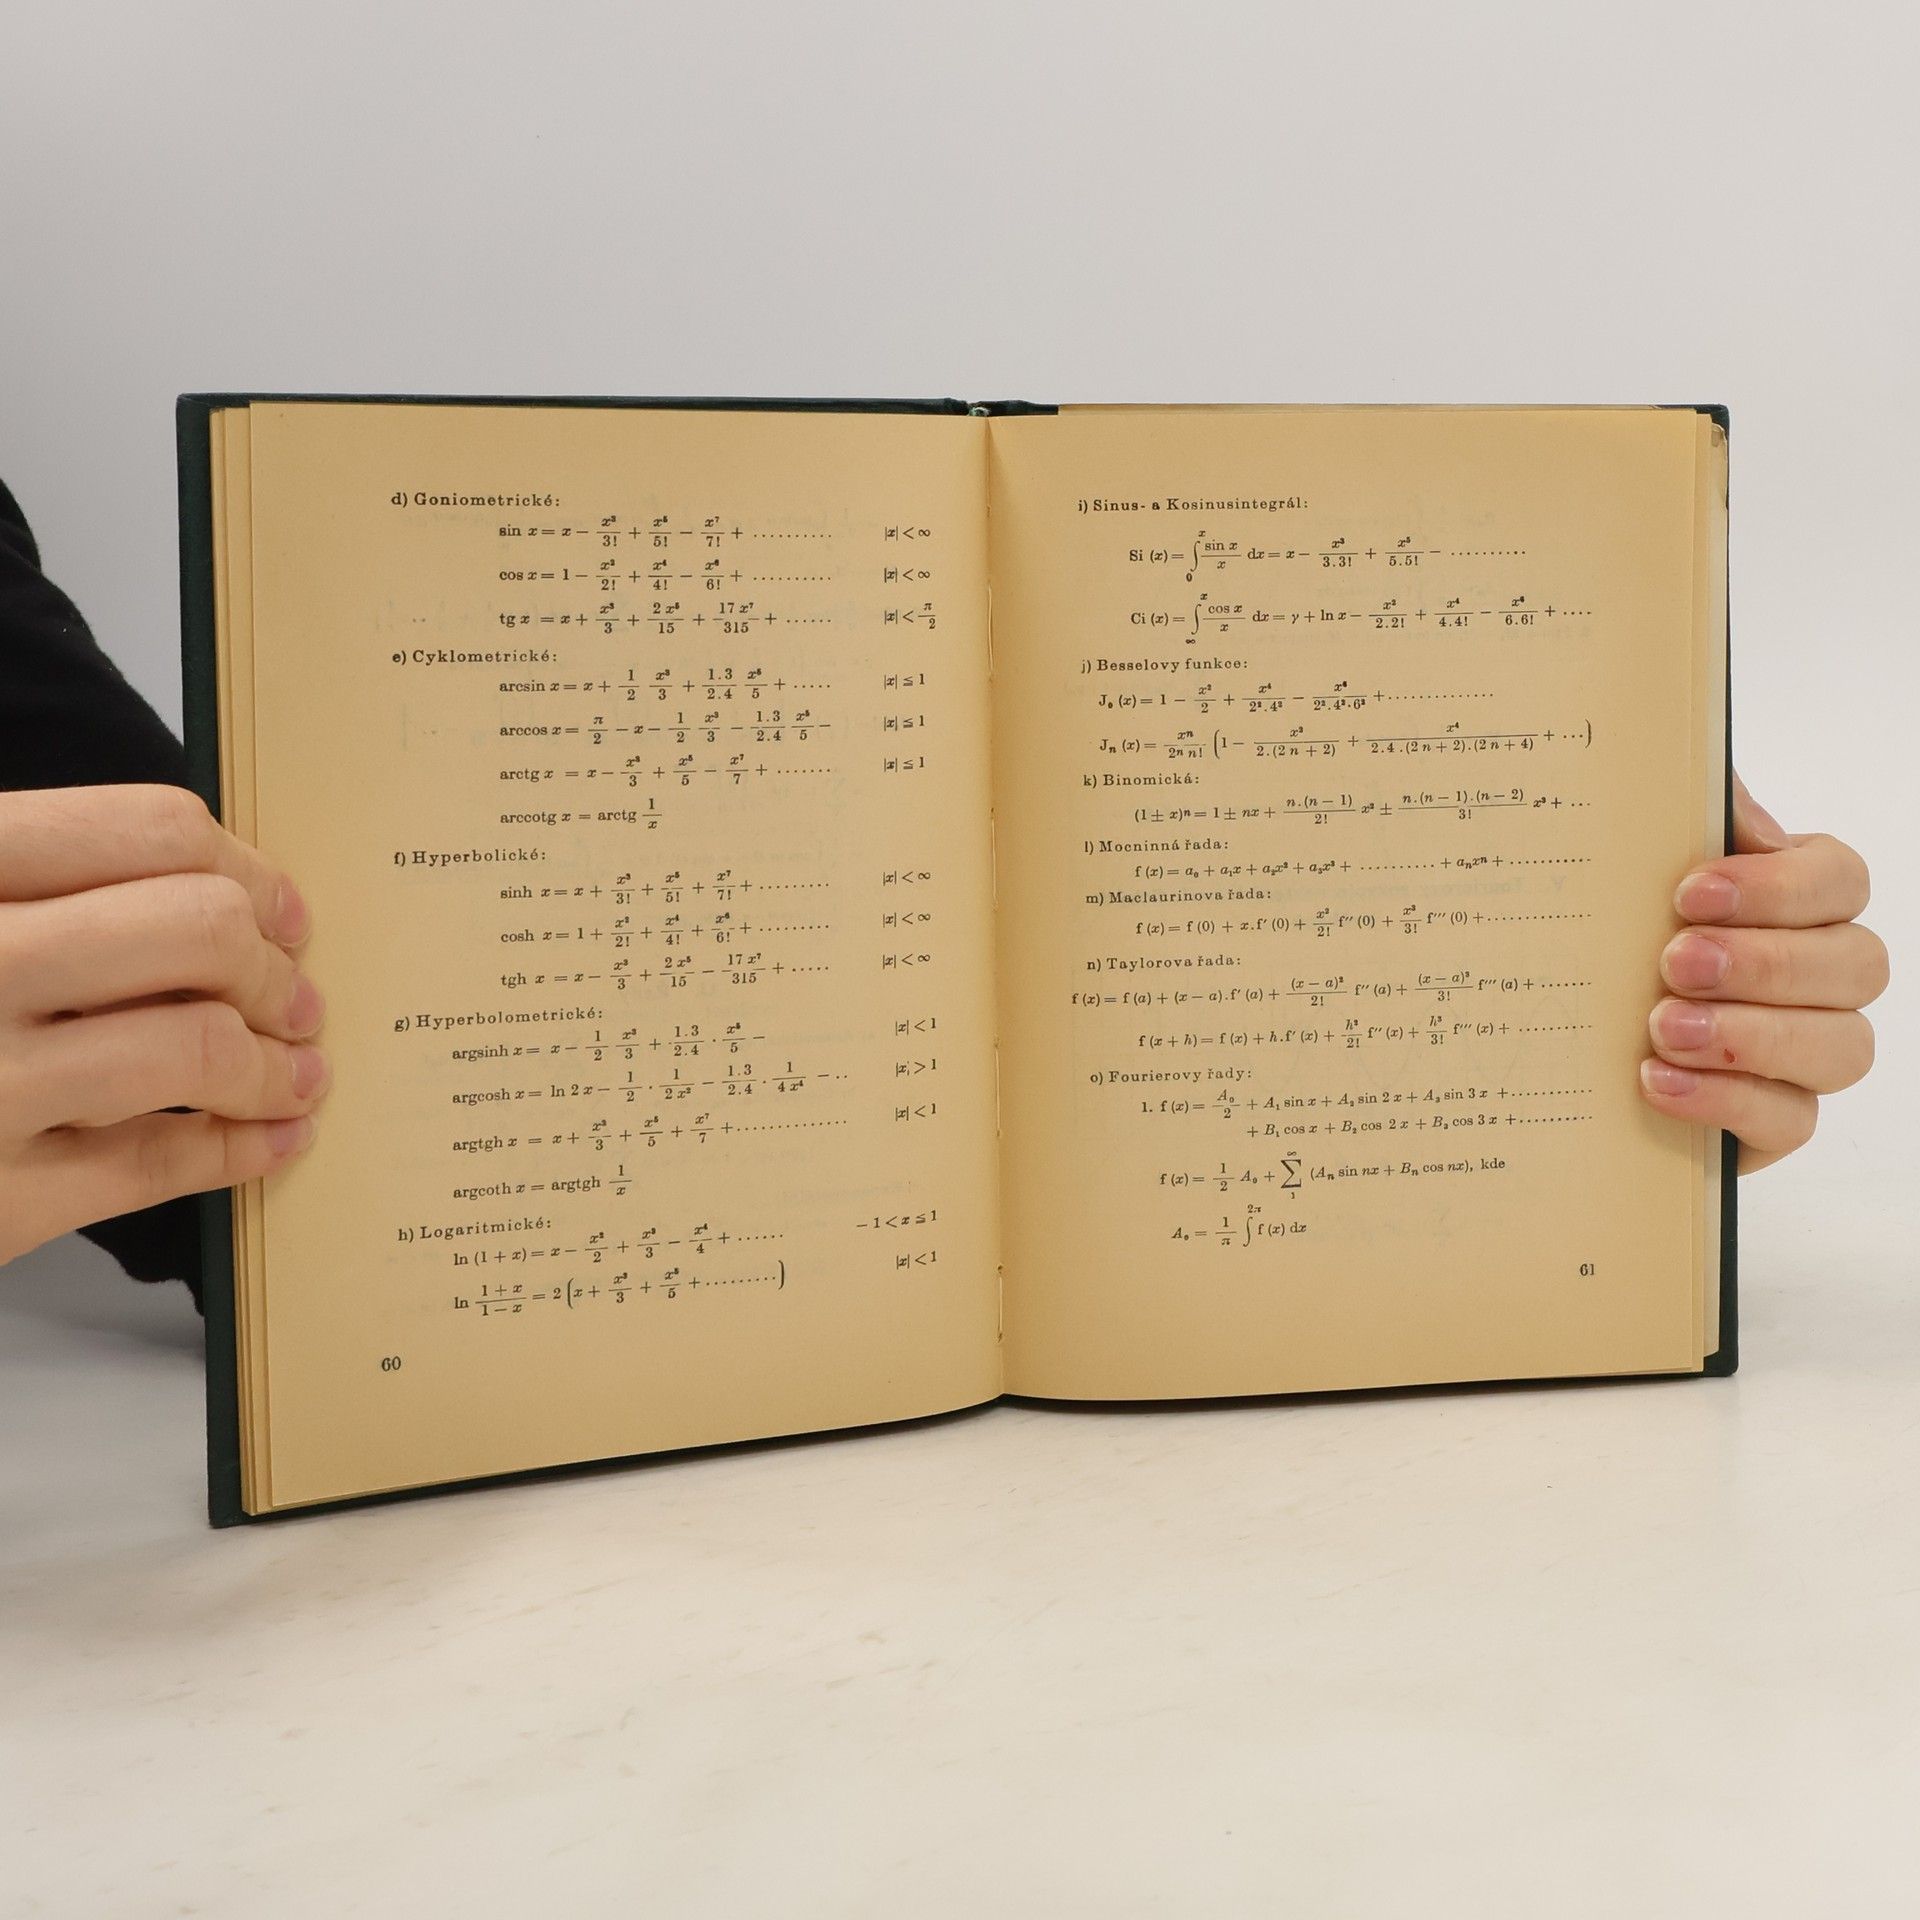 d) Goniometrické:
sin x = x − x³/3! + x⁵/5! − x⁷/7! + .......... |x| < ∞
cos x = 1 − x²/2! + x⁴/4! − x⁶/6! + .......... |x| < ∞
tg x = x + x³/3 + 2 x⁵/15 + 17 x⁷/315 + ...... |x| < π/2
e) Cyklometrické:
arcsin x = x + 1/2 x³/3 + 1.3/2.4 x⁵/5 + ..... |x| ≦ 1
arccos x = π/2 − x − 1/2 x³/3 − 1.3/2.4 x⁵/5 − |x| ≦ 1
arctg x = x − x³/3 + x⁵/5 − x⁷/7 + ....... |x| ≦ 1
arccotg x = arctg 1/x
f) Hyperbolické:
sinh x = x + x³/3! + x⁵/5! + x⁷/7! + ......... |x| < ∞
cosh x = 1 + x²/2! + x⁴/4! + x⁶/6! + ......... |x| < ∞
tgh x = x − x³/3 + 2 x⁵/15 − 17 x⁷/315 + ..... |x| < ∞
g) Hyperbolometrické:
argsinh x = x − 1/2 x³/3 + 1.3/2.4 . x⁵/5 − |x| < 1
argcosh x = ln 2 x − 1/2 . 1/2 x² − 1.3/2.4 . 1/4 x⁴ − .. |x| > 1
argtgh x = x + x³/3 + x⁵/5 + x⁷/7 + .............. |x| < 1
argcoth x = argtgh 1/x
h) Logaritmické:
ln (1 + x) = x − x²/2 + x³/3 − x⁴/4 + ...... − 1 < x ≦ 1
ln 1 + x/1 − x = 2 (x + x³/3 + x⁵/5 + .........) |x| < 1
60
i) Sinus- a Kosinusintegrál:
Si (x) = ∫₀ˣ sin x/x dx = x − x³/3.3! + x⁵/5.5! − ..........
Ci (x) = ∫∞ˣ cos x/x dx = γ + ln x − x²/2.2! + x⁴/4.4! − x⁶/6.6! + ....
j) Besselovy funkce:
J₀ (x) = 1 − x²/2 + x⁴/2².4² − x⁶/2².4².6² + ..............
Jₙ (x) = xⁿ/2ⁿ n! (1 − x²/2.(2 n + 2) + x⁴/2.4.(2 n + 2).(2 n + 4) + ...)
k) Binomická:
(1 ± x)ⁿ = 1 ± nx + n.(n − 1)/2! x² ± n.(n − 1).(n − 2)/3! x³ + ...
l) Mocninná řada:
f (x) = a₀ + a₁x + a₂x² + a₃x³ + .......... + aₙxⁿ + ..........
m) Maclaurinova řada:
f (x) = f (0) + x.f′ (0) + x²/2! f″ (0) + x³/3! f‴ (0) + .............
n) Taylorova řada:
f (x) = f (a) + (x − a).f′ (a) + (x − a)²/2! f″ (a) + (x − a)³/3! f‴ (a) + .......
f (x + h) = f (x) + h.f′ (x) + h²/2! f″ (x) + h³/3! f‴ (x) + ..........
o) Fourierovy řady:
1. f (x) = A₀/2 + A₁ sin x + A₂ sin 2 x + A₃ sin 3 x + ..........
+ B₁ cos x + B₂ cos 2 x + B₃ cos 3 x + ..........
f (x) = 1/2 A₀ + ∑₁^∞ (Aₙ sin nx + Bₙ cos nx), kde
A₀ = 1/π ∫^2π f (x) dx
61